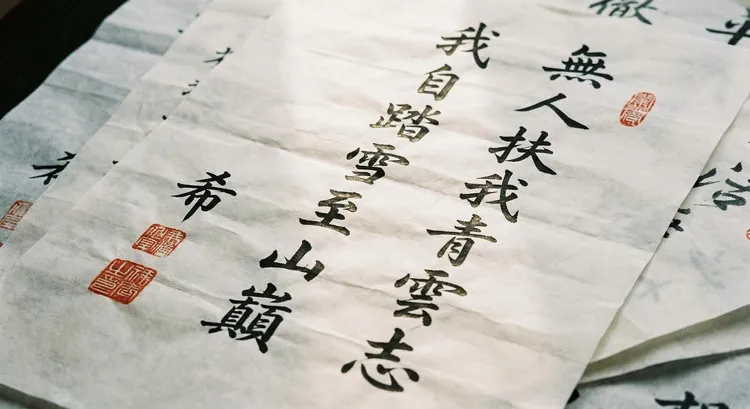 無人扶我青雲志
我自踏雪至山巔
希